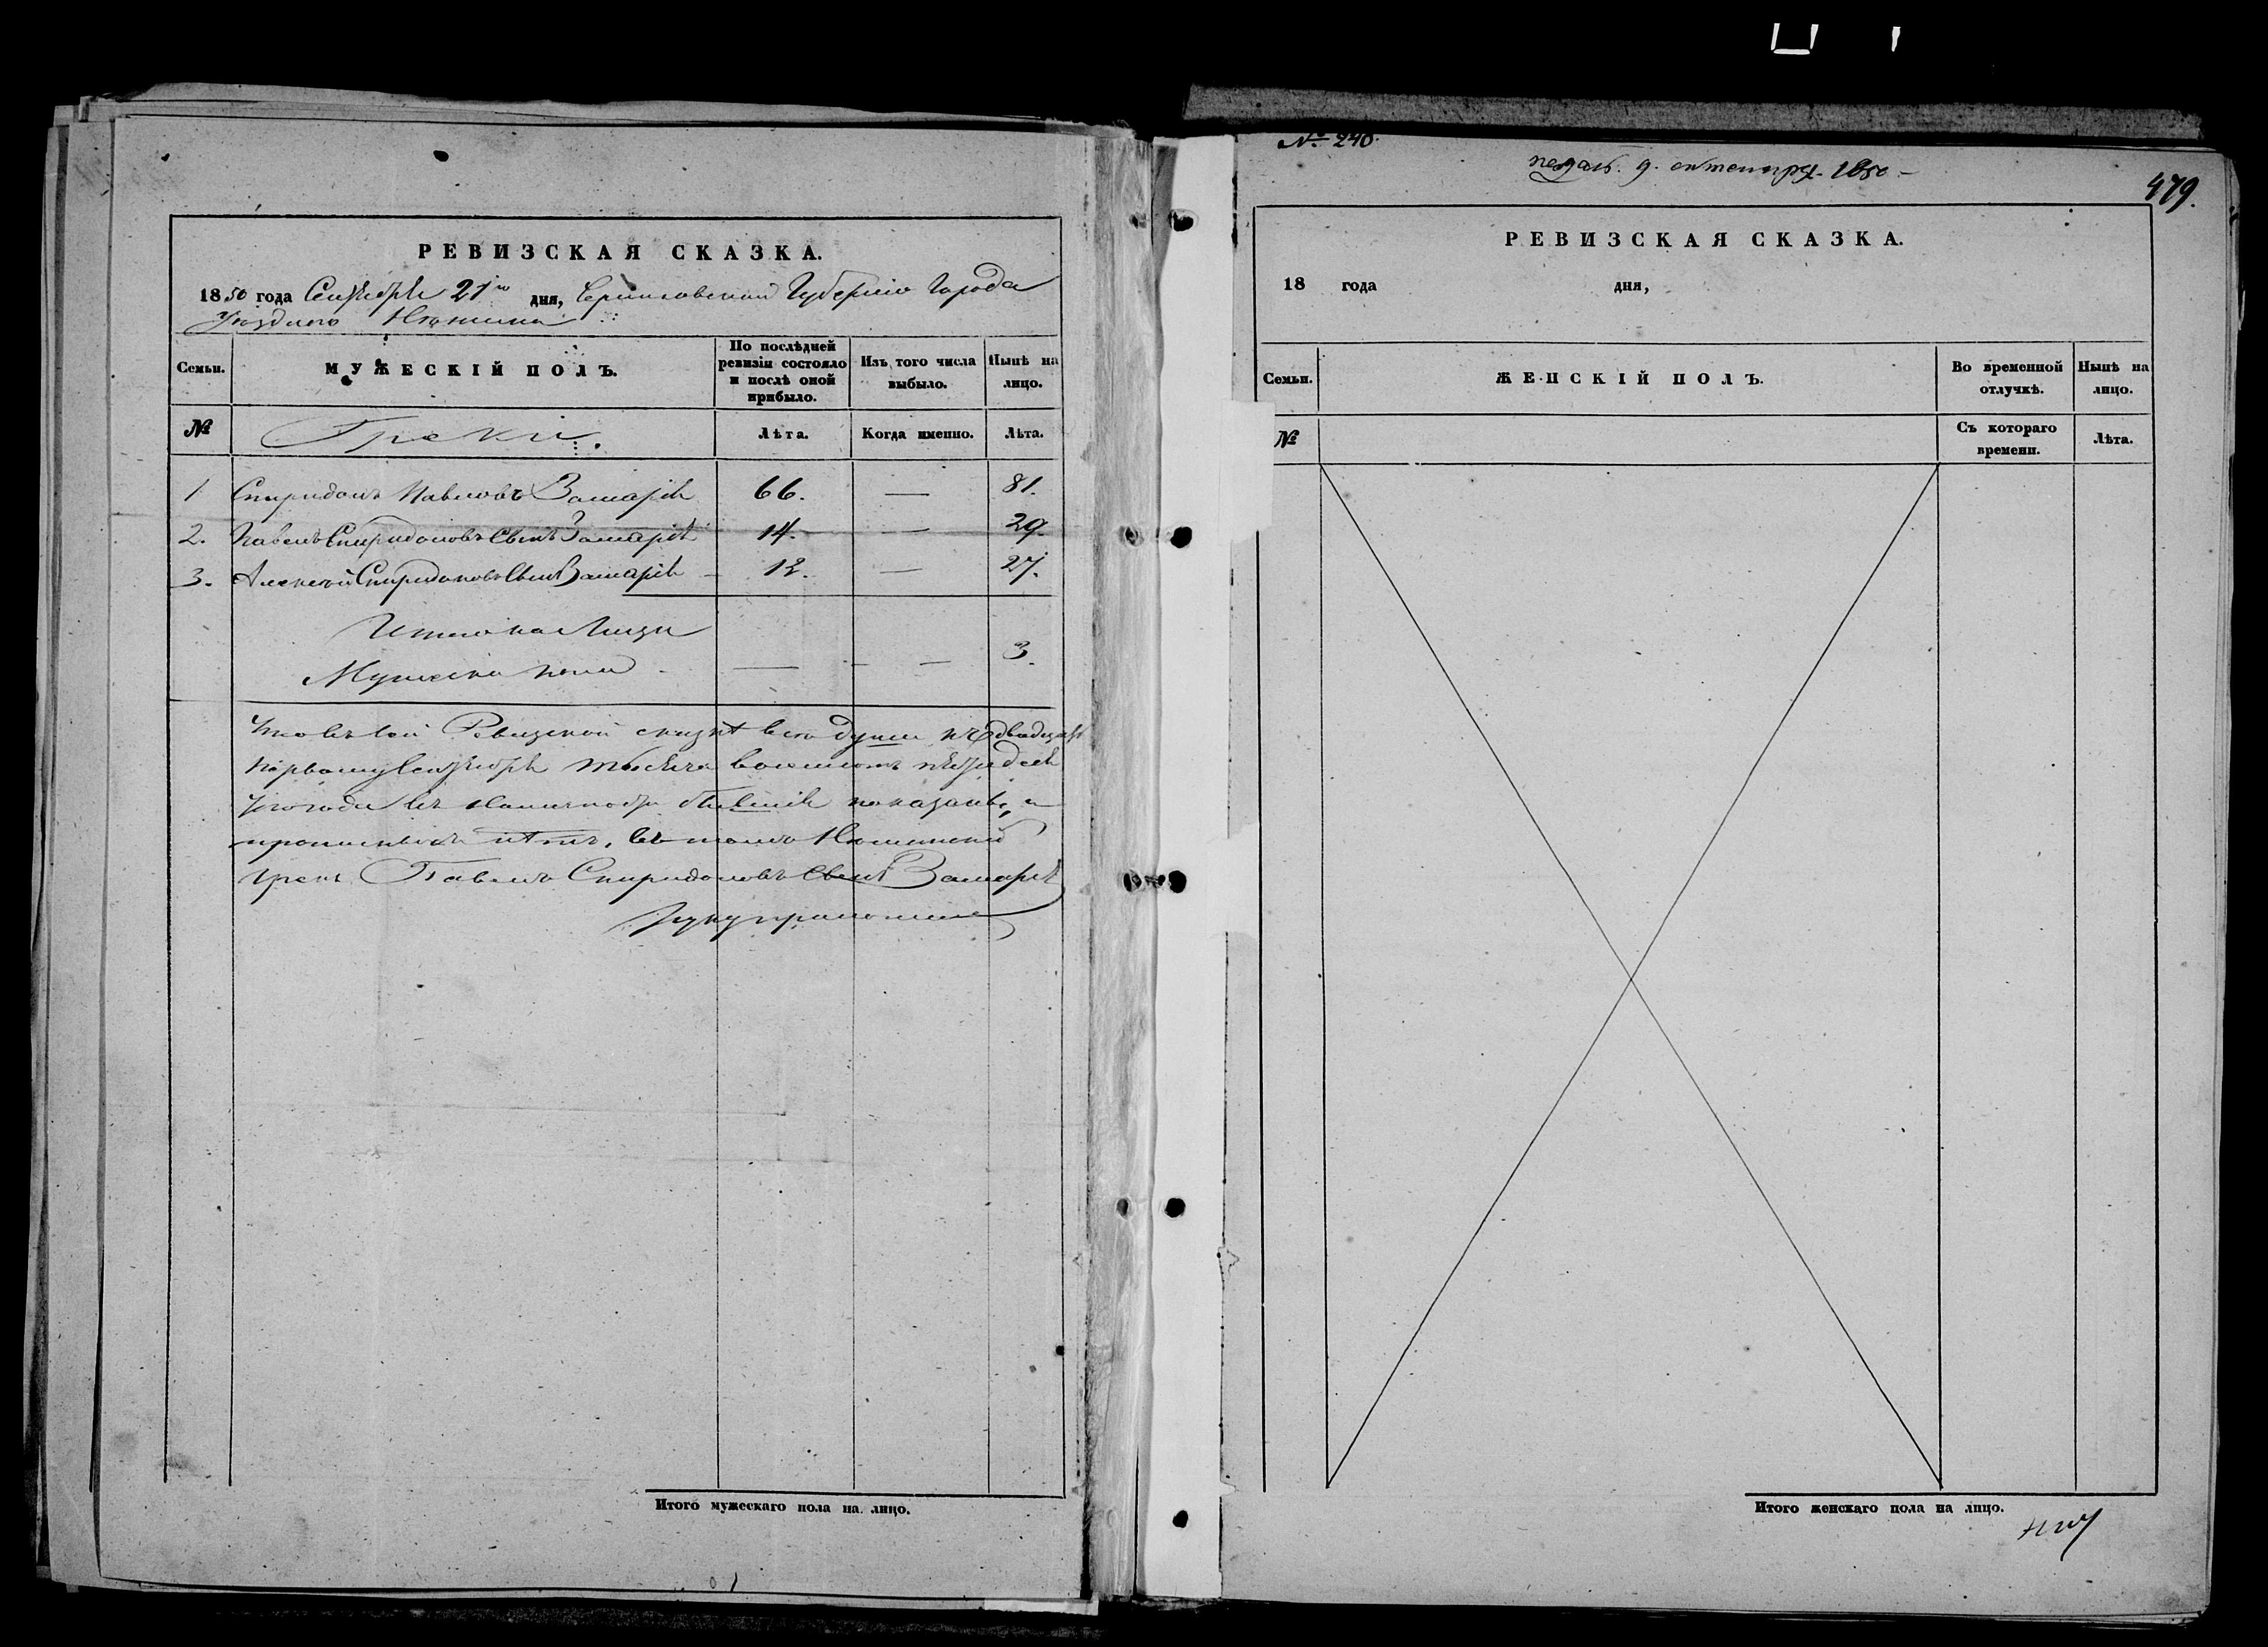 РЕВИЗСКАЯ СКАЗКА.
1850 года Сентября 21го дня, Черниговской Губернии Города
Уезднаго Нежина
Семьи.
МУЖЕСКІЙ ПОЛЪ.
По послѣдней ревизіи состояло и послѣ оной прибыло.
Изъ того числа выбыло.
Нынѣ на лицо.
№
Греки.
Лѣта.
Когда именно.
Лѣта.
1 Спиридонъ Павловъ 66. — 81.
2. Павелъ Спиридоновъ Сынъ 14. — 29.
3. Алексей Спиридоновъ Сынъ 12. — 27.
Итого на Лицо
Мужеска пола — — 3.
Что въ сей Ревизской сказке все души къ двадцать
первому Сентября месяца восемсотъ пятьдесят
года въ показаны, а
прописныхъ нетъ, въ томъ Нежинский
грекъ Павелъ Спиридоновъ Сынъ
руку приложилъ
Итого мужескаго пола на лицо.
№ 240.
подалъ. 9. октембря. 1850 –
479.
РЕВИЗСКАЯ СКАЗКА.
18 года дня,
Семьи.
ЖЕНСКІЙ ПОЛЪ.
Во временной отлучкѣ.
Нынѣ на лицо.
№
Съ котораго времени.
Лѣта.
Итого женскаго пола на лицо.